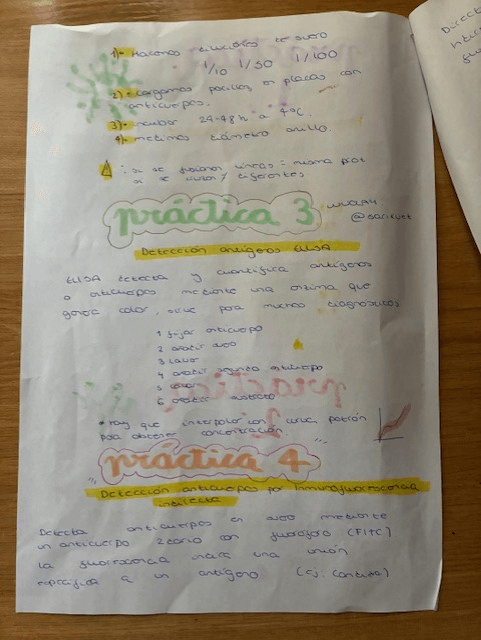 1)- Hacemos diluciones de suero
1/10 1/50 1/100
2)- cargamos pocillos en placas con
anticuerpos.
3)- incubar 24-48h a 4ºC.
4)- medimos diámetro anillo
si se fusionan líneas = misma prot
si se cruzan / diferentes
práctica 3
WUOLAH
Detección antígenos ELISA
ELISA detecta y cuantifica antígenos
o anticuerpos mediante una enzima que
genera color, sirve para muchos diagnósticos
1 fijar anticuerpo
2 añadir suero
3 lavar
4 añadir segundo anticuerpo
5 lavar
6 añadir sustrato
* hay que interpolar con curva patrón
para obtener concentración
práctica 4
Detección anticuerpos por Inmunofluorescencia
indirecta
Detecta anticuerpos en suero mediante
un anticuerpo 2dario con fluoróforo (FITC)
la fluorescencia indica una unión
específica a un antígeno (ej. Candida)